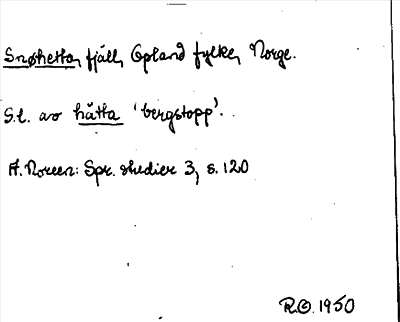 Snøhetta, fjäll, Opland fylke, Norge.
S.l. av hätta 'bergstopp'.
A. Noreen: Spr. studier 3, s. 120
R.O. 1950